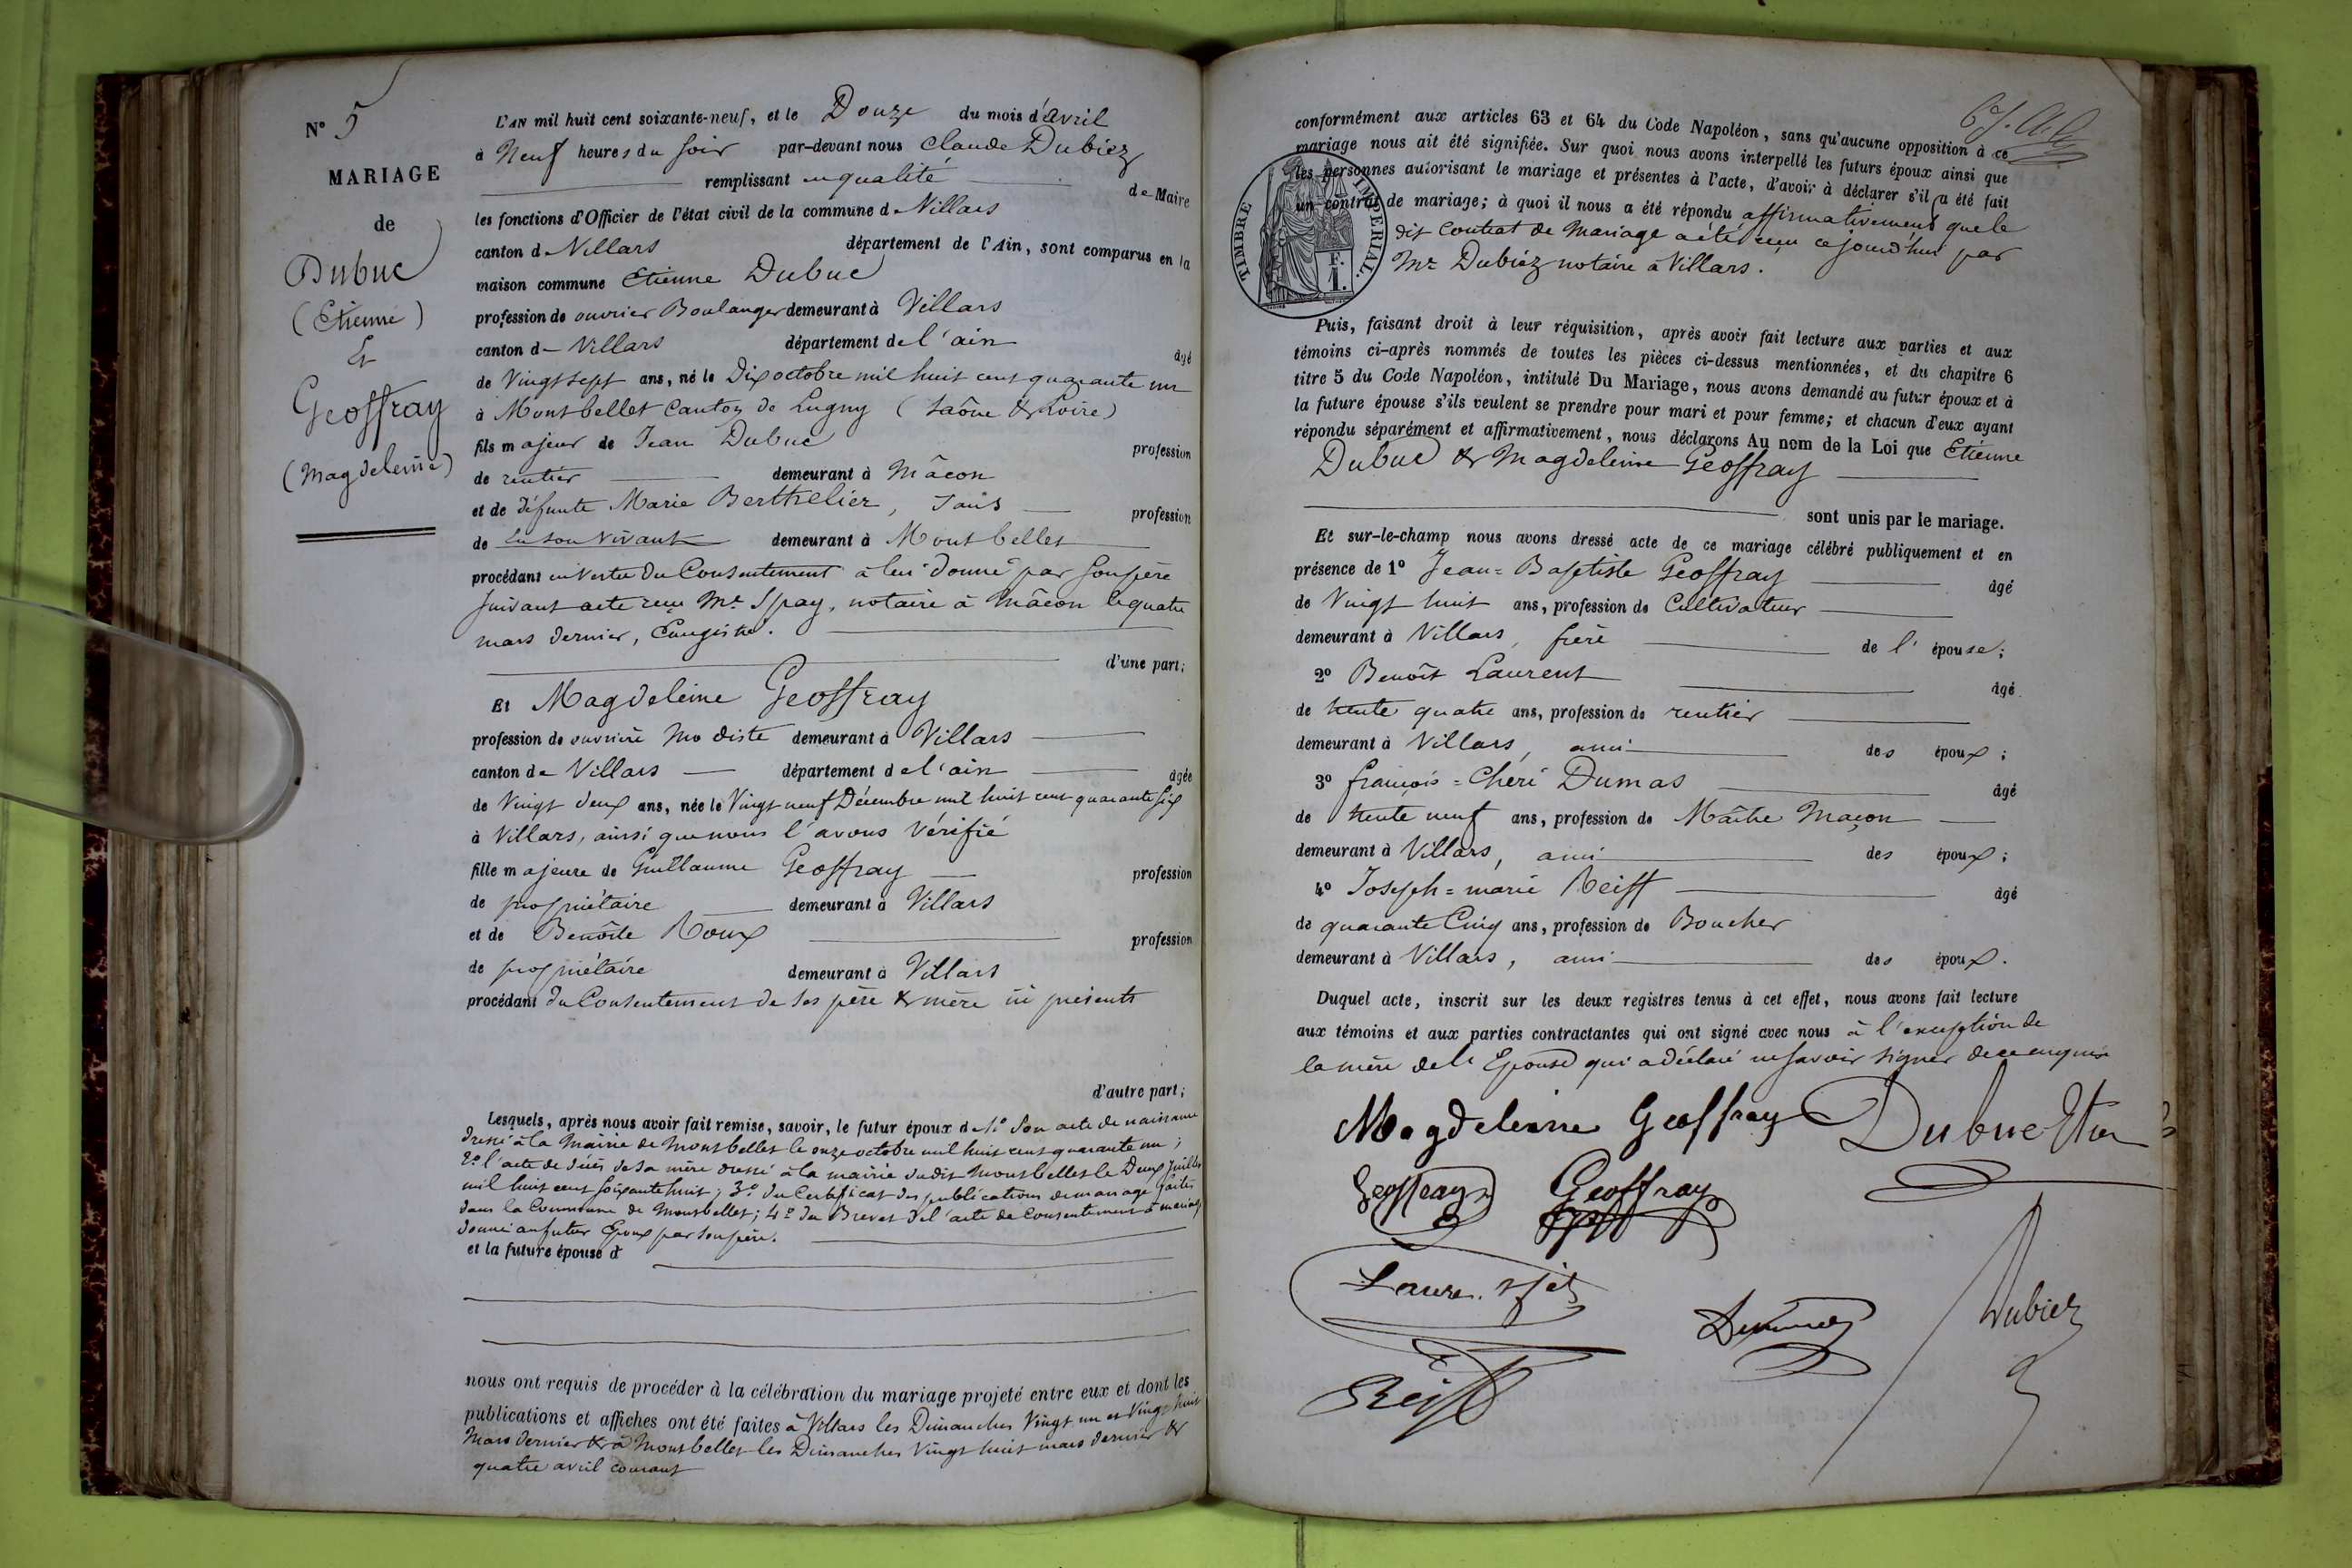 N° 5
MARIAGE
de
Dubuc
(Etienne)
Et
Geoffray
(Magdeleine)
L'AN mil huit cent soixante-neuf, et le Douze du mois d'avril
à Neuf heures du soir par-devant nous Claude Dubiez
remplissant en qualité de Maire
les fonctions d'Officier de l'état civil de la commune de Villars
canton de Villars département de l'Ain, sont comparus en la
maison commune Etienne Dubuc
profession de ouvrier Boulanger demeurant à Villars
canton de Villars département de l'ain âgé
de Vingt sept ans, né le Dix octobre mil huit cent quarante un
à Montbellet Canton de Lugny (Saône & Loire)
fils majeur de Jean Dubuc profession
de rentier demeurant à Mâcon
et de défunte Marie Berthelier, sans profession
de en son vivant demeurant à Montbellet
procédant en vertu du Consentement à lui donné par son père
suivant acte reçu Me Spay, notaire à Mâcon le quatre
mars dernier, Enregistré.
d'une part;
Et Magdeleine Geoffray
profession de ouvrière Modiste demeurant à Villars
canton de Villars département de l'ain âgée
de Vingt deux ans, née le Vingt neuf Décembre mil huit cent quarante six
à Villars, ainsi que nous l'avons Vérifié
fille majeure de Guillaume Geoffray profession
de propriétaire demeurant à Villars
et de Benoîte Roux profession
de propriétaire demeurant à Villars
procédant du Consentement de ses père & mère ici présents
d'autre part;
Lesquels, après nous avoir fait remise, savoir, le futur époux de 1° Son acte de naissance
dressé à la Mairie de Montbellet le onze octobre mil huit cent quarante un;
2° l'acte de décès de sa mère dressé à la mairie dudit Montbellet le Deux Juillet
mil huit cent soixante huit; 3° du Certificat des publications de mariage faites
dans la Commune de Montbellet; 4° du Brevet de l'acte de Consentement à mariage
donné au futur Epoux par son père.
et la future épouse d
nous ont requis de procéder à la célébration du mariage projeté entre eux et dont les
publications et affiches ont été faites à Villars les Dimanches Vingt un et Vingt huit
Mars dernier & à Montbellet les Dimanches Vingt huit mars dernier &
quatre avril courant
conformément aux articles 63 et 64 du Code Napoléon, sans qu'aucune opposition à ce
mariage nous ait été signifiée. Sur quoi nous avons interpellé les futurs époux ainsi que
les personnes autorisant le mariage et présentes à l'acte, d'avoir à déclarer s'il a été fait
un contrat de mariage; à quoi il nous a été répondu affirmativement que le
dit Contrat de Mariage a été reçu ce jourd'hui par
Me Dubiez notaire à Villars.
TIMBRE IMPERIAL.
F.
1.
Puis, faisant droit à leur réquisition, après avoir fait lecture aux parties et aux
témoins ci-après nommés de toutes les pièces ci-dessus mentionnées, et du chapitre 6
titre 5 du Code Napoléon, intitulé Du Mariage, nous avons demandé au futur époux et à
la future épouse s'ils veulent se prendre pour mari et pour femme; et chacun d'eux ayant
répondu séparément et affirmativement, nous déclarons Au nom de la Loi que Etienne
Dubuc & Magdeleine Geoffray
sont unis par le mariage.
Et sur-le-champ nous avons dressé acte de ce mariage célébré publiquement et en
présence de 1° Jean=Baptiste Geoffray âgé
de Vingt huit ans, profession de Cultivateur
demeurant à Villars, frère de l'épouse;
2° Benoît Laurent âgé
de trente quatre ans, profession de rentier
demeurant à Villars, ami des époux;
3° françois=Chéri Dumas âgé
de trente neuf ans, profession de Maître Maçon
demeurant à Villars, ami des époux;
4° Joseph=marie Reiff âgé
de quarante Cinq ans, profession de Boucher
demeurant à Villars, ami des époux.
Duquel acte, inscrit sur les deux registres tenus à cet effet, nous avons fait lecture
aux témoins et aux parties contractantes qui ont signé avec nous à l'exception de
la mère de l'Epouse qui a déclaré ne savoir signer de ce enquise
Magdeleine Geoffray Dubuc
Geoffray Geoffray
Dumas Dubiez
Reiff